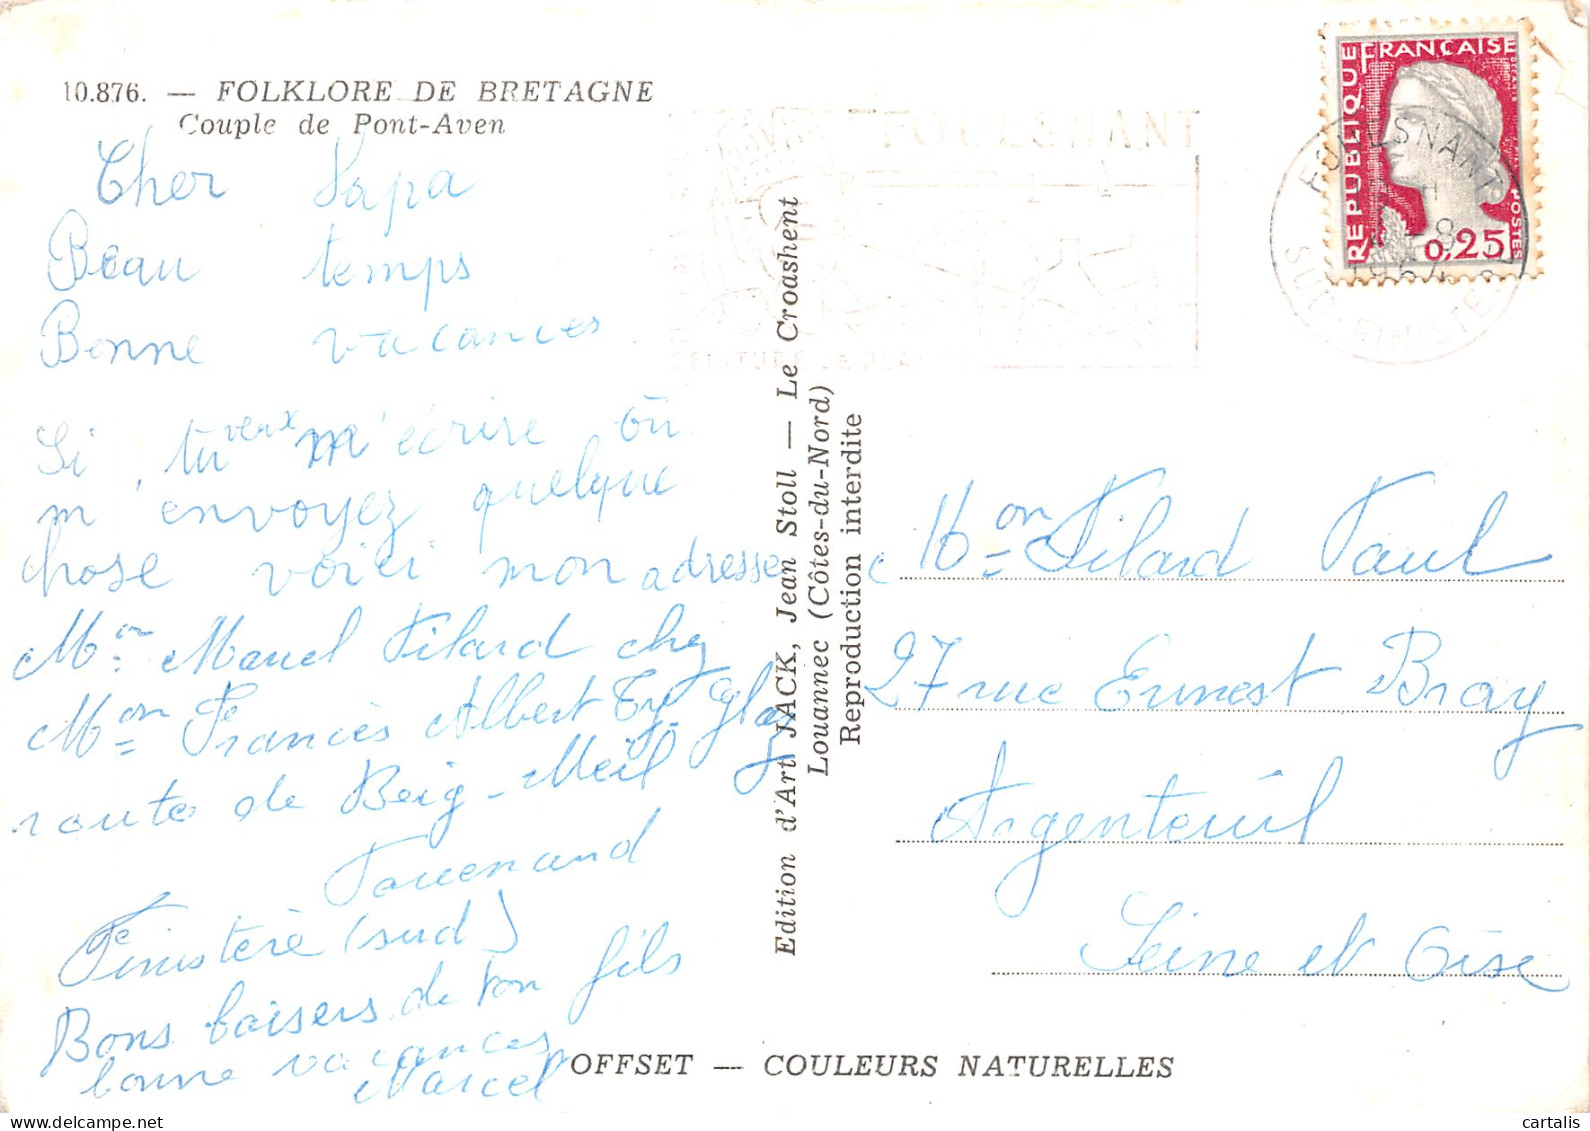 10.876. — FOLKLORE DE BRETAGNE
Couple de Pont-Aven
Cher Papa
Beau temps
Bonne vacances
Si tu veux m'écrire ou
m'envoyez quelque
chose voici mon adresse
Mr Marcel Pilard chez
Mon Francès Albert Ty glaz
route de Beig-Meil
Fouenand
Finistère (sud)
Bons baisers de ton fils
bonne vacances
Marcel
Edition d'Art JACK, Jean Stoll — Le Croashent
Louannec (Côtes-du-Nord)
Reproduction interdite
FOUESNANT
REPUBLIQUE FRANÇAISE
POSTES
0,25
FOUESNANT
SUD-FINISTERE
1964
Mon Pilard Paul
27 rue Ernest Bray
Argenteuil
Seine et Oise
OFFSET — COULEURS NATURELLES
delcampe.net
cartalis